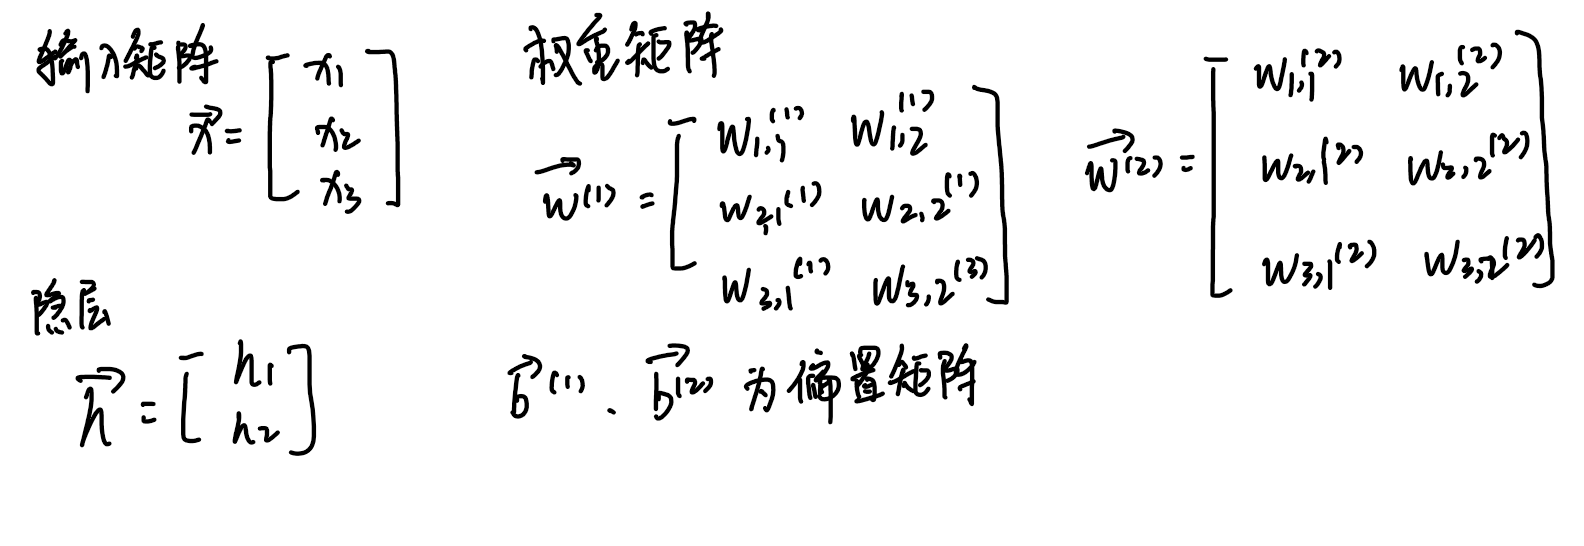 输入矩阵
x⃗ = [ x1
x2
x3 ]
权重矩阵
w⃗^(1) = [ w1,1^(1) w1,2^(1)
w2,1^(1) w2,2^(1)
w3,1^(1) w3,2^(3) ]
w⃗^(2) = [ w1,1^(2) w1,2^(2)
w2,1^(2) w2,2^(2)
w3,1^(2) w3,2^(2) ]
隐层
h⃗ = [ h1
h2 ]
b⃗^(1)、b⃗^(2) 为偏置矩阵